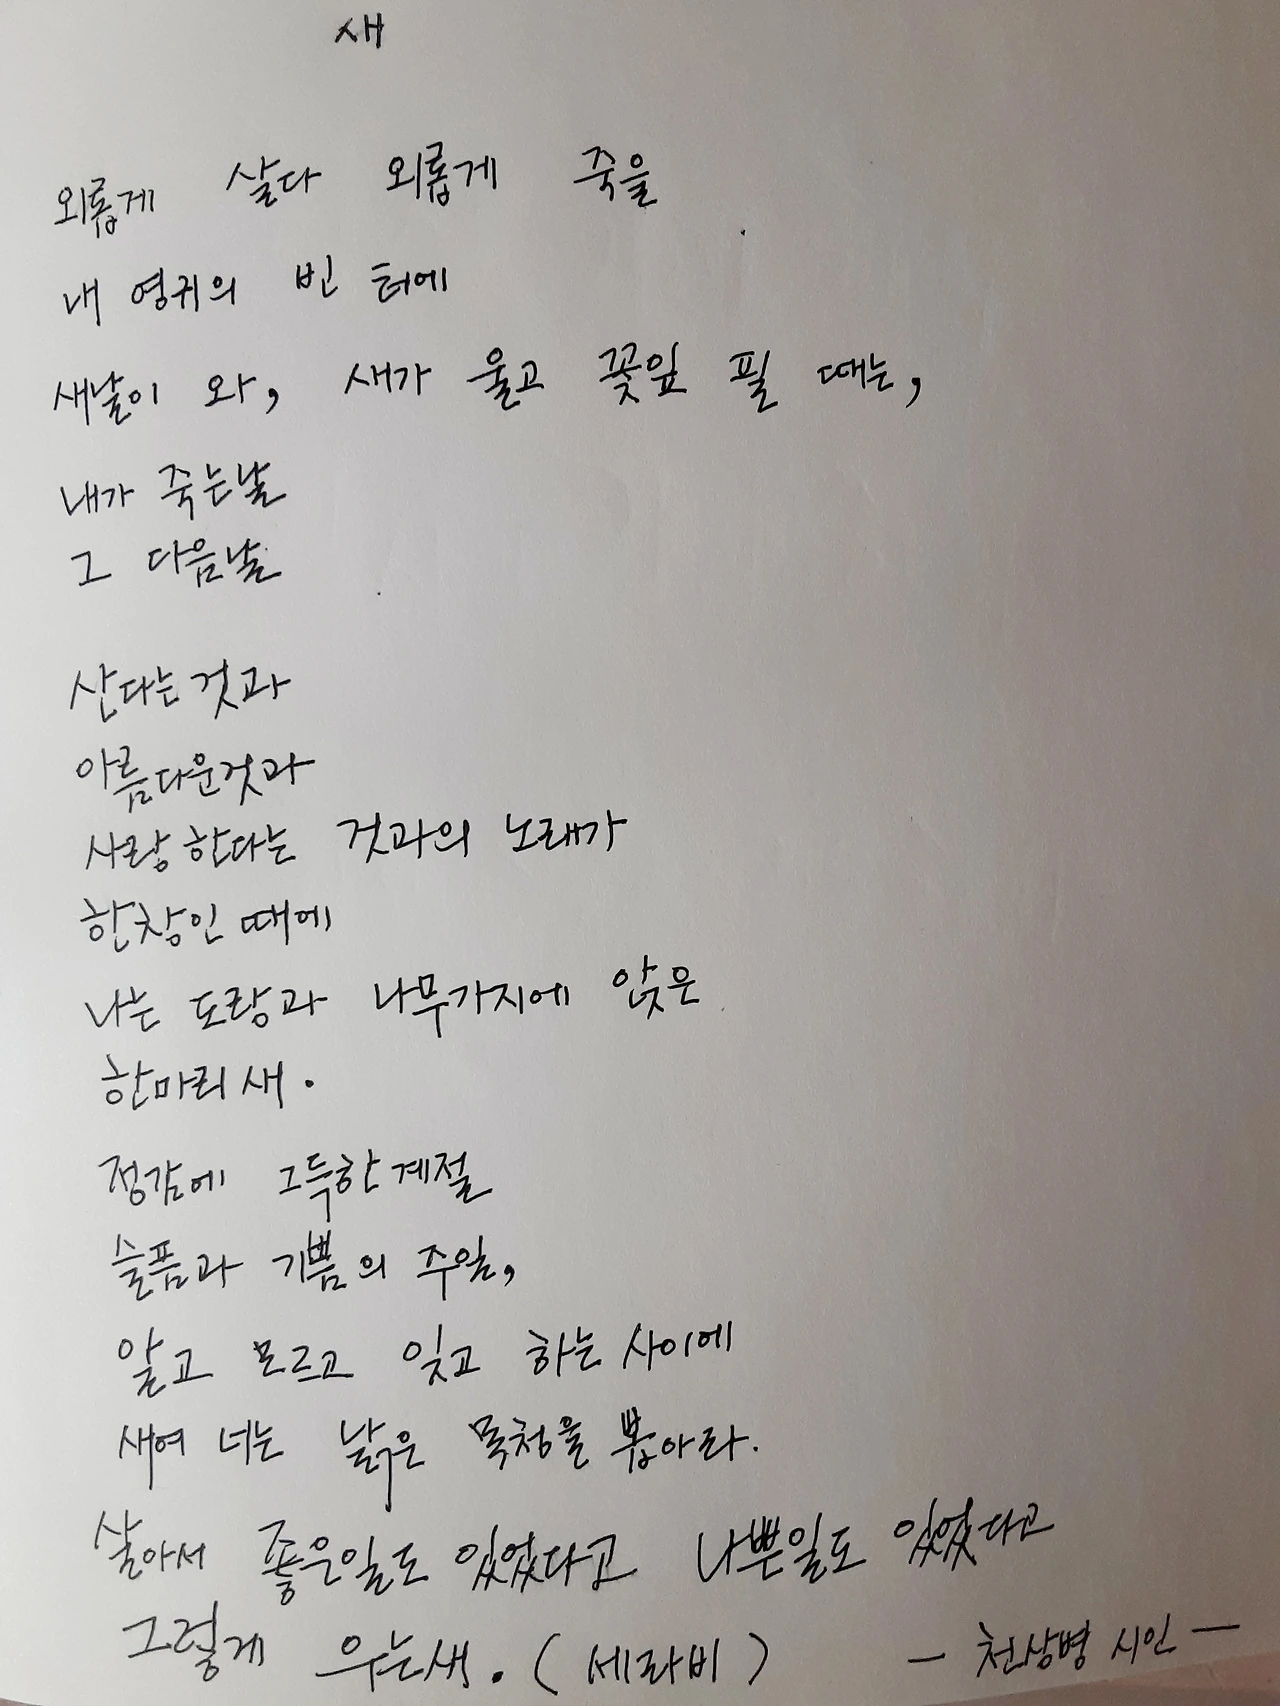 새
외롭게 살다 외롭게 죽을
내 영귀의 빈 터에
새날이 와, 새가 울고 꽃잎 필 때는,
내가 죽는날
그 다음날
산다는것과
아름다운것과
사랑한다는 것과의 노래가
한창인 때에
나는 도랑과 나무가지에 앉은
한마리새.
정감에 그득한계절
슬픔과 기쁨의 주일,
알고 모르고 잊고 하는 사이에
새여 너는 낡은 목청을 뽑아라.
살아서 좋은일도 있었다고 나쁜일도 있었다고
그렇게 우는새. (세라비) - 천상병 시인 -